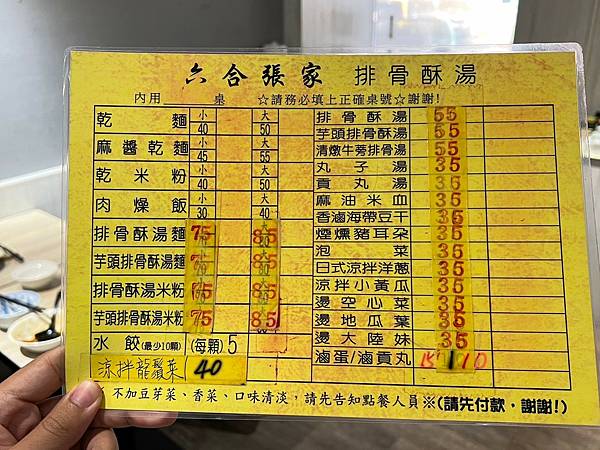 六合張家 排骨酥湯
內用 桌 ☆請務必填上正確桌號☆謝謝!
乾麵 小 40 大 50
麻醬乾麵 小 45 大 55
乾米粉 小 40 大 50
肉燥飯 小 30 大 40
排骨酥湯麵 75 85
芋頭排骨酥湯麵 75 85
排骨酥湯米粉 75 85
芋頭排骨酥湯米粉 75 85
水餃(最少10顆) (每顆) 5
涼拌龍鬚菜 40
排骨酥湯 55
芋頭排骨酥湯 55
清燉牛蒡排骨湯 55
丸子湯 35
貢丸湯 35
麻油米血 35
香滷海帶豆干 35
煙燻豬耳朶 35
泡菜 35
日式涼拌洋蔥 35
涼拌小黃瓜 35
燙空心菜 35
燙地瓜葉 35
燙大陸妹 35
滷蛋/滷貢丸 15 / 10
不加豆芽菜、香菜、口味清淡，請先告知點餐人員※(請先付款·謝謝!)